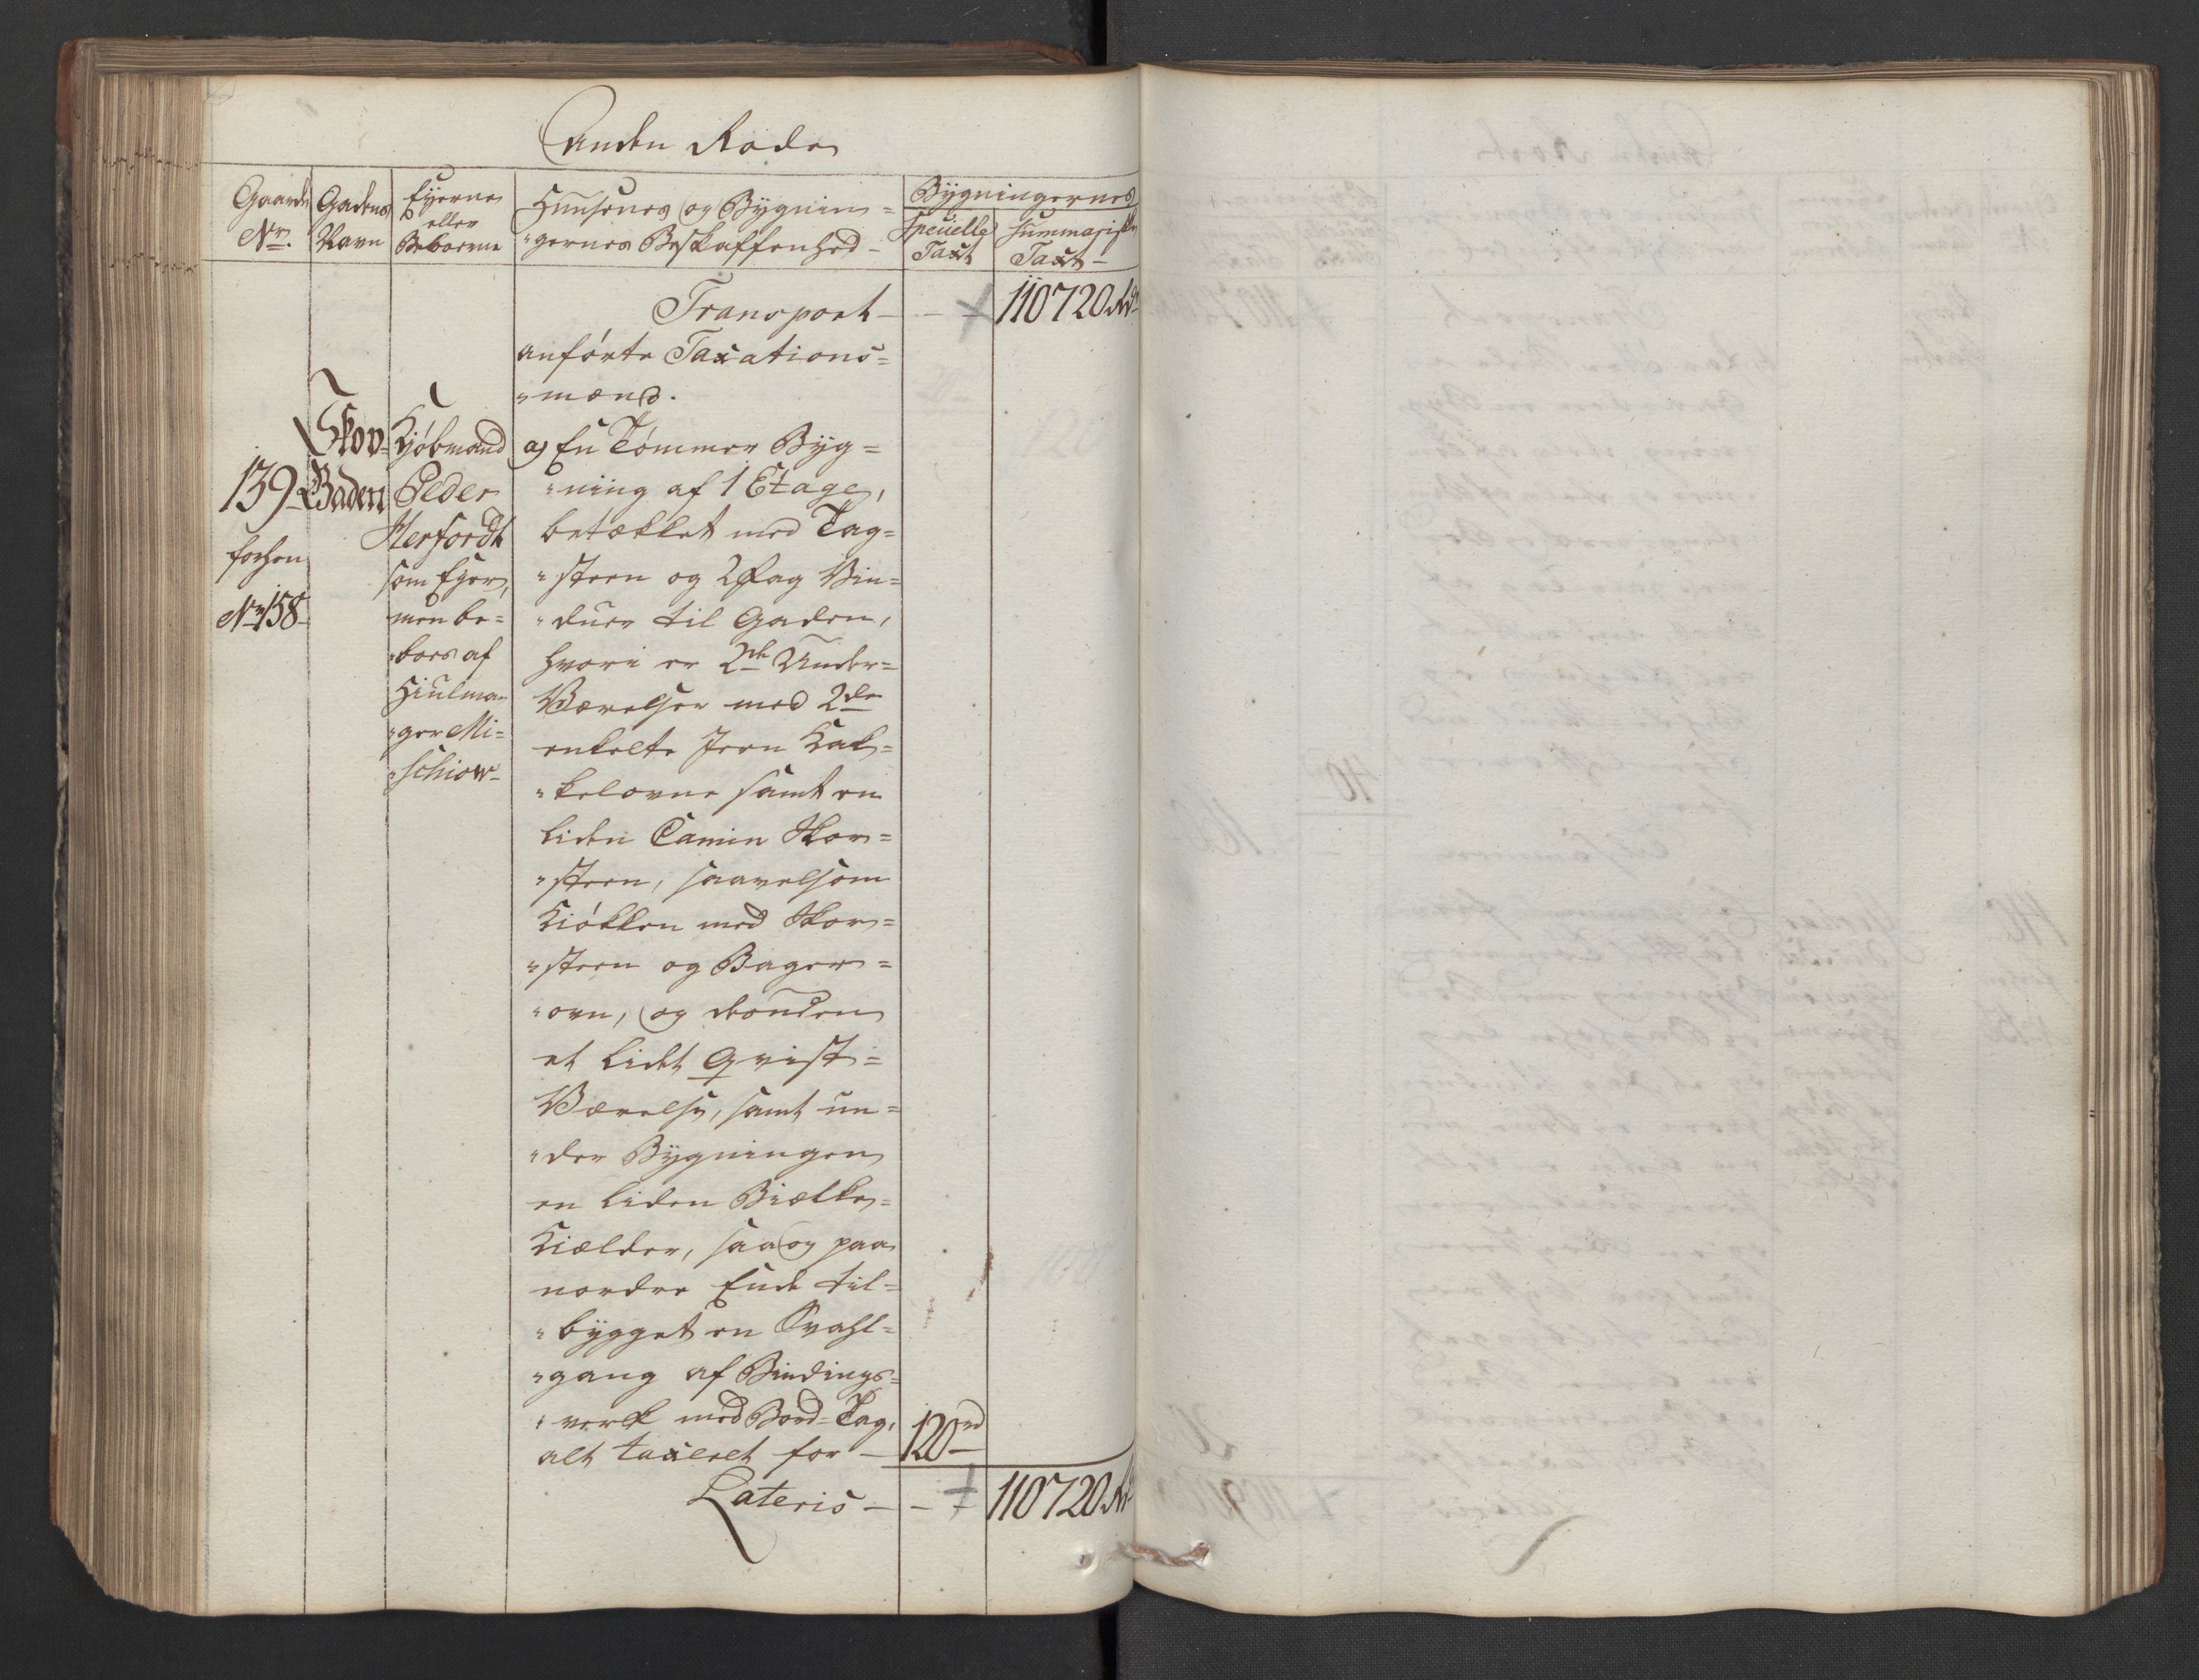 Anden Rode
Gaards Nr.
Gadens Navn
Eyerne eller Beboerne
Huusenes og Bygnin=
"gernes Beskaffenhed –
Bygningernes
Specielle Taxt
Summariske Taxt –
Transport – – – 110720 Rdr
anførte Taxations=
"mænd.
139
forhen
Nr 158
Skov=
Baden
Kjøbmand
Peder
Herfordt
som Eyer,
men be=
"boes af
Hiulma=
"ger Mi=
"schiow
a) En Tømmer Byg=
"ning af 1 Etage,
betækket med Tag=
"steen og 2 Fag Vin=
"duer til Gaden,
hvori er 2de Under=
Værelser med 2de
enkelte Jern Kak=
"kelovne samt en
liden Camin Skor=
"steen, saavelsom
Kiøkken med Skor=
"steen og Bager=
"ovn, og
et lidet Qvist=
Værelse, samt un=
"der Bygningen
en liden Biælke=
Kielder, saa og paa
nordre Ende til=
"bygget en Svahl=
"gang af Bindings=
"verk med Bord=Tag,
alt taxeret for – 120 rd
Lateris – – – 110720 Rdr